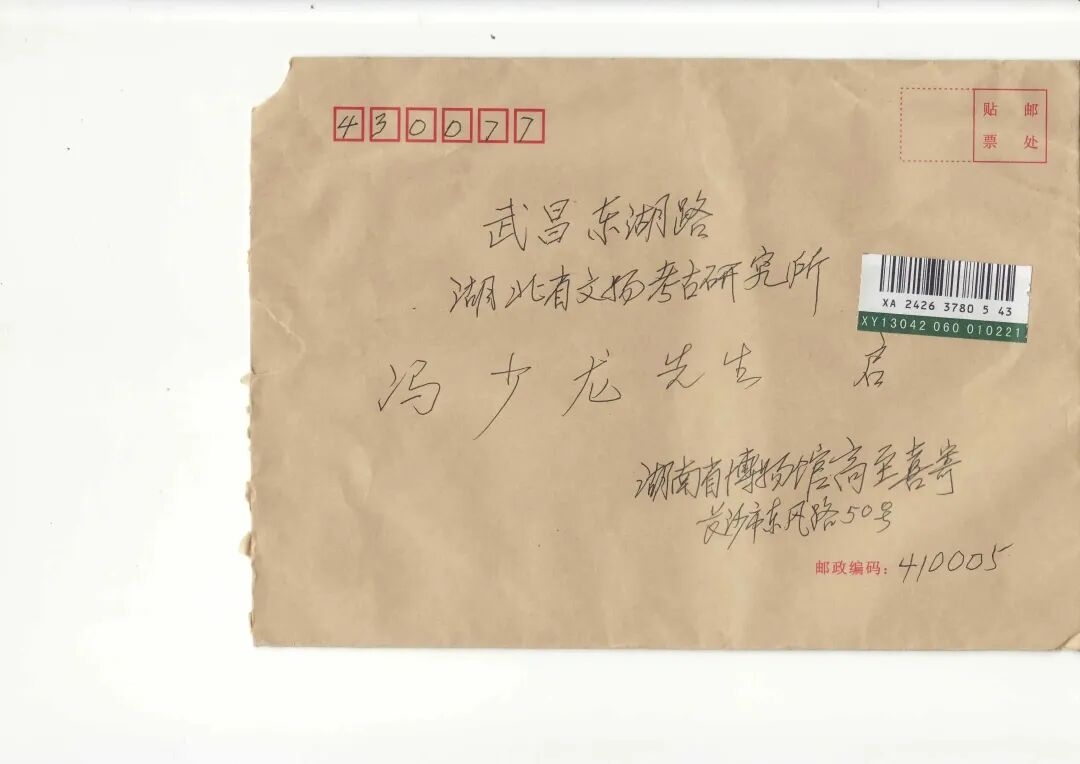 430077
贴 邮
票 处
武昌东湖路
湖北省文物考古研究所
XA 2426 3780 5 43
XY13042 060 010221
冯少龙先生 启
湖南省博物馆高至喜寄
长沙市东风路50号
邮政编码：410005